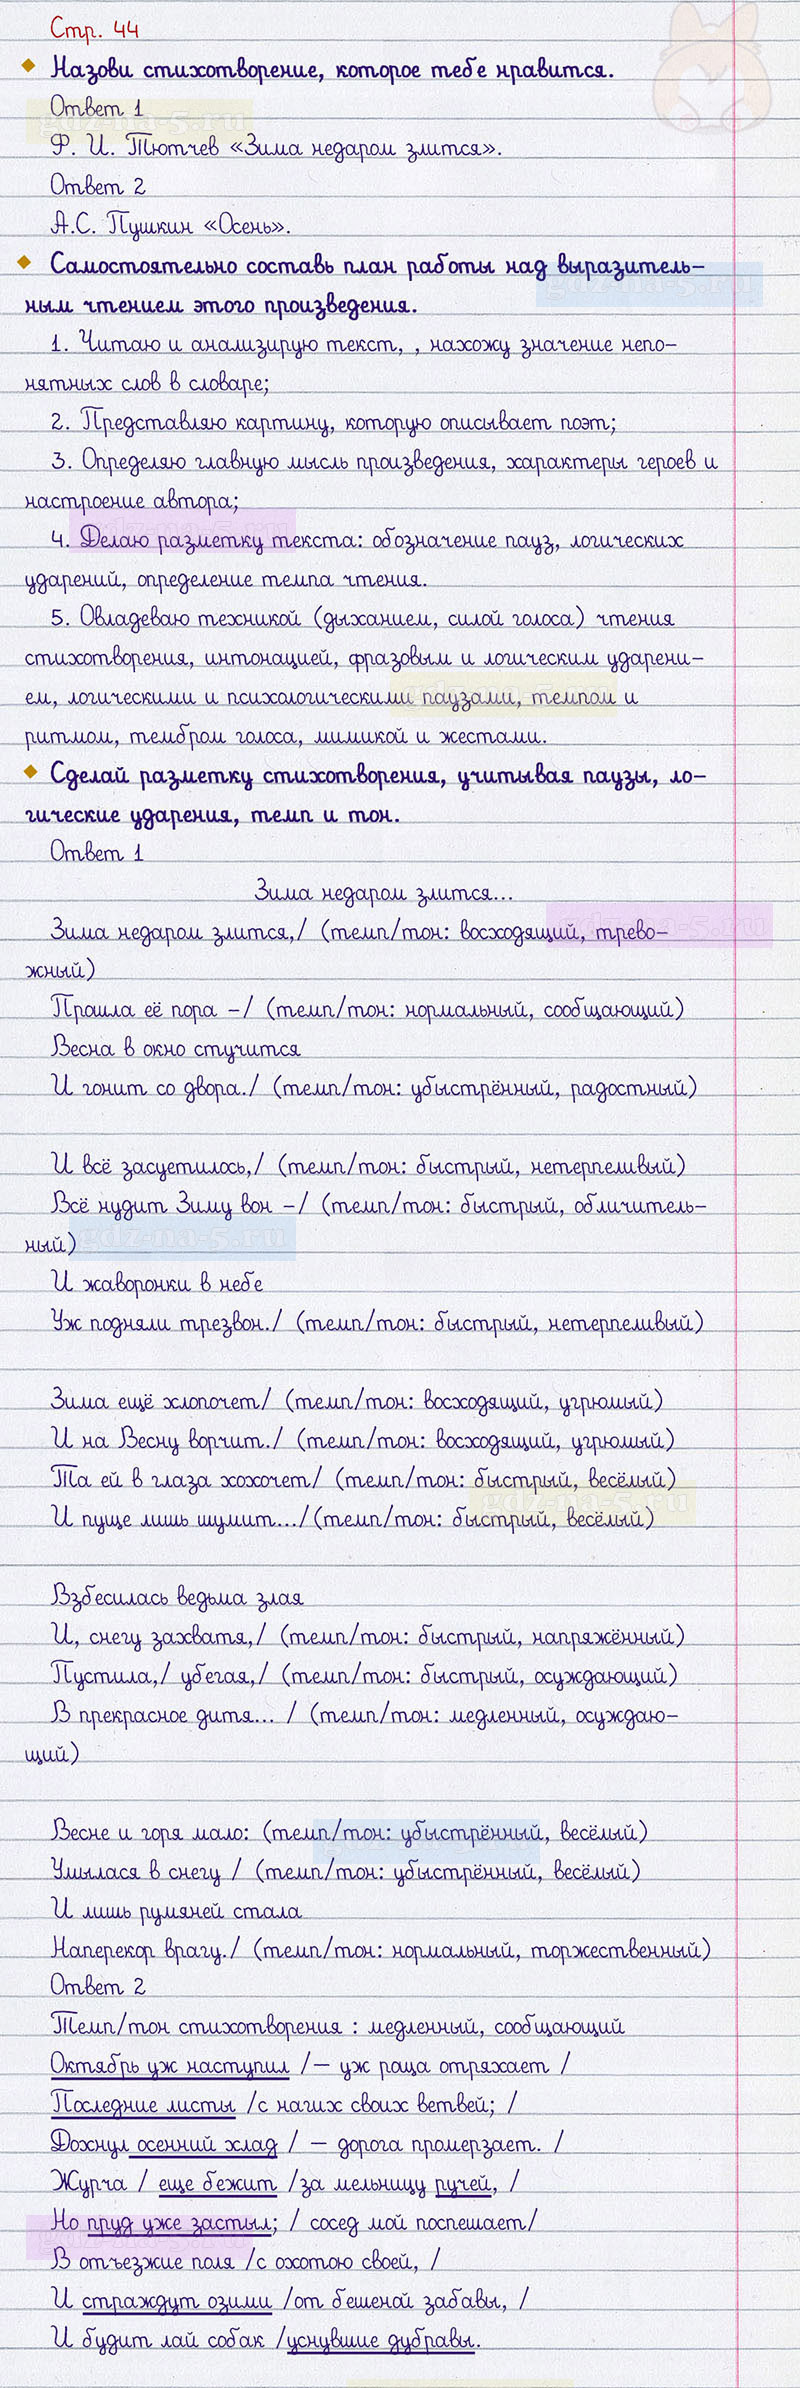 Стр. 44
Назови стихотворение, которое тебе нравится.
Ответ 1
gdz-na-5.ru
Ф. И. Тютчев «Зима недаром злится».
Ответ 2
А.С. Пушкин «Осень».
Самостоятельно составь план работы над выразитель-
gdz-na-5.ru
ным чтением этого произведения.
1. Читаю и анализирую текст, , нахожу значение непо-
нятных слов в словаре;
2. Представляю картину, которую описывает поэт;
3. Определяю главную мысль произведения, характеры героев и
настроение автора;
gdz-na-5.ru
4. Делаю разметку текста: обозначение пауз, логических
ударений, определение темпа чтения.
5. Овладеваю техникой (дыханием, силой голоса) чтения
стихотворения, интонацией, фразовым и логическим ударени-
ем, логическими и психологическими паузами, темпом и
gdz-na-5.ru
ритмом, тембром голоса, мимикой и жестами.
Сделай разметку стихотворения, учитывая паузы, ло-
гические ударения, темп и тон.
Ответ 1
Зима недаром злится...
Зима недаром злится,/ (темп/тон: восходящий, трево-
gdz-na-5.ru
жный)
Прошла её пора -/ (темп/тон: нормальный, сообщающий)
Весна в окно стучится
И гонит со двора./ (темп/тон: убыстрённый, радостный)
И всё засуетилось,/ (темп/тон: быстрый, нетерпеливый)
Всё нудит Зиму вон -/ (темп/тон: быстрый, обличитель-
ный)
gdz-na-5.ru
И жаворонки в небе
Уж подняли трезвон./ (темп/тон: быстрый, нетерпеливый)
Зима ещё хлопочет/ (темп/тон: восходящий, угрюмый)
И на Весну ворчит./ (темп/тон: восходящий, угрюмый)
Та ей в глаза хохочет/ (темп/тон: быстрый, весёлый)
gdz-na-5.ru
И пуще лишь шумит.../(темп/тон: быстрый, весёлый)
Взбесилась ведьма злая
И, снегу захватя,/ (темп/тон: быстрый, напряжённый)
Пустила,/ убегая,/ (темп/тон: быстрый, осуждающий)
В прекрасное дитя... / (темп/тон: медленный, осуждаю-
щий)
Весне и горя мало: (темп/тон: убыстрённый, весёлый)
gdz-na-5.ru
Умылася в снегу / (темп/тон: убыстрённый, весёлый)
И лишь румяней стала
Наперекор врагу./ (темп/тон: нормальный, торжественный)
Ответ 2
Темп/тон стихотворения : медленный, сообщающий
Октябрь уж наступил /– уж роща отряхает /
Последние листы /с нагих своих ветвей; /
Дохнул осенний хлад / – дорога промерзает. /
Журча / еще бежит /за мельницу ручей, /
Но пруд уже застыл; / сосед мой поспешает/
gdz-na-5.ru
В отъезжие поля /с охотою своей, /
И страждут озими /от бешеной забавы, /
И будит лай собак /уснувшие дубравы.